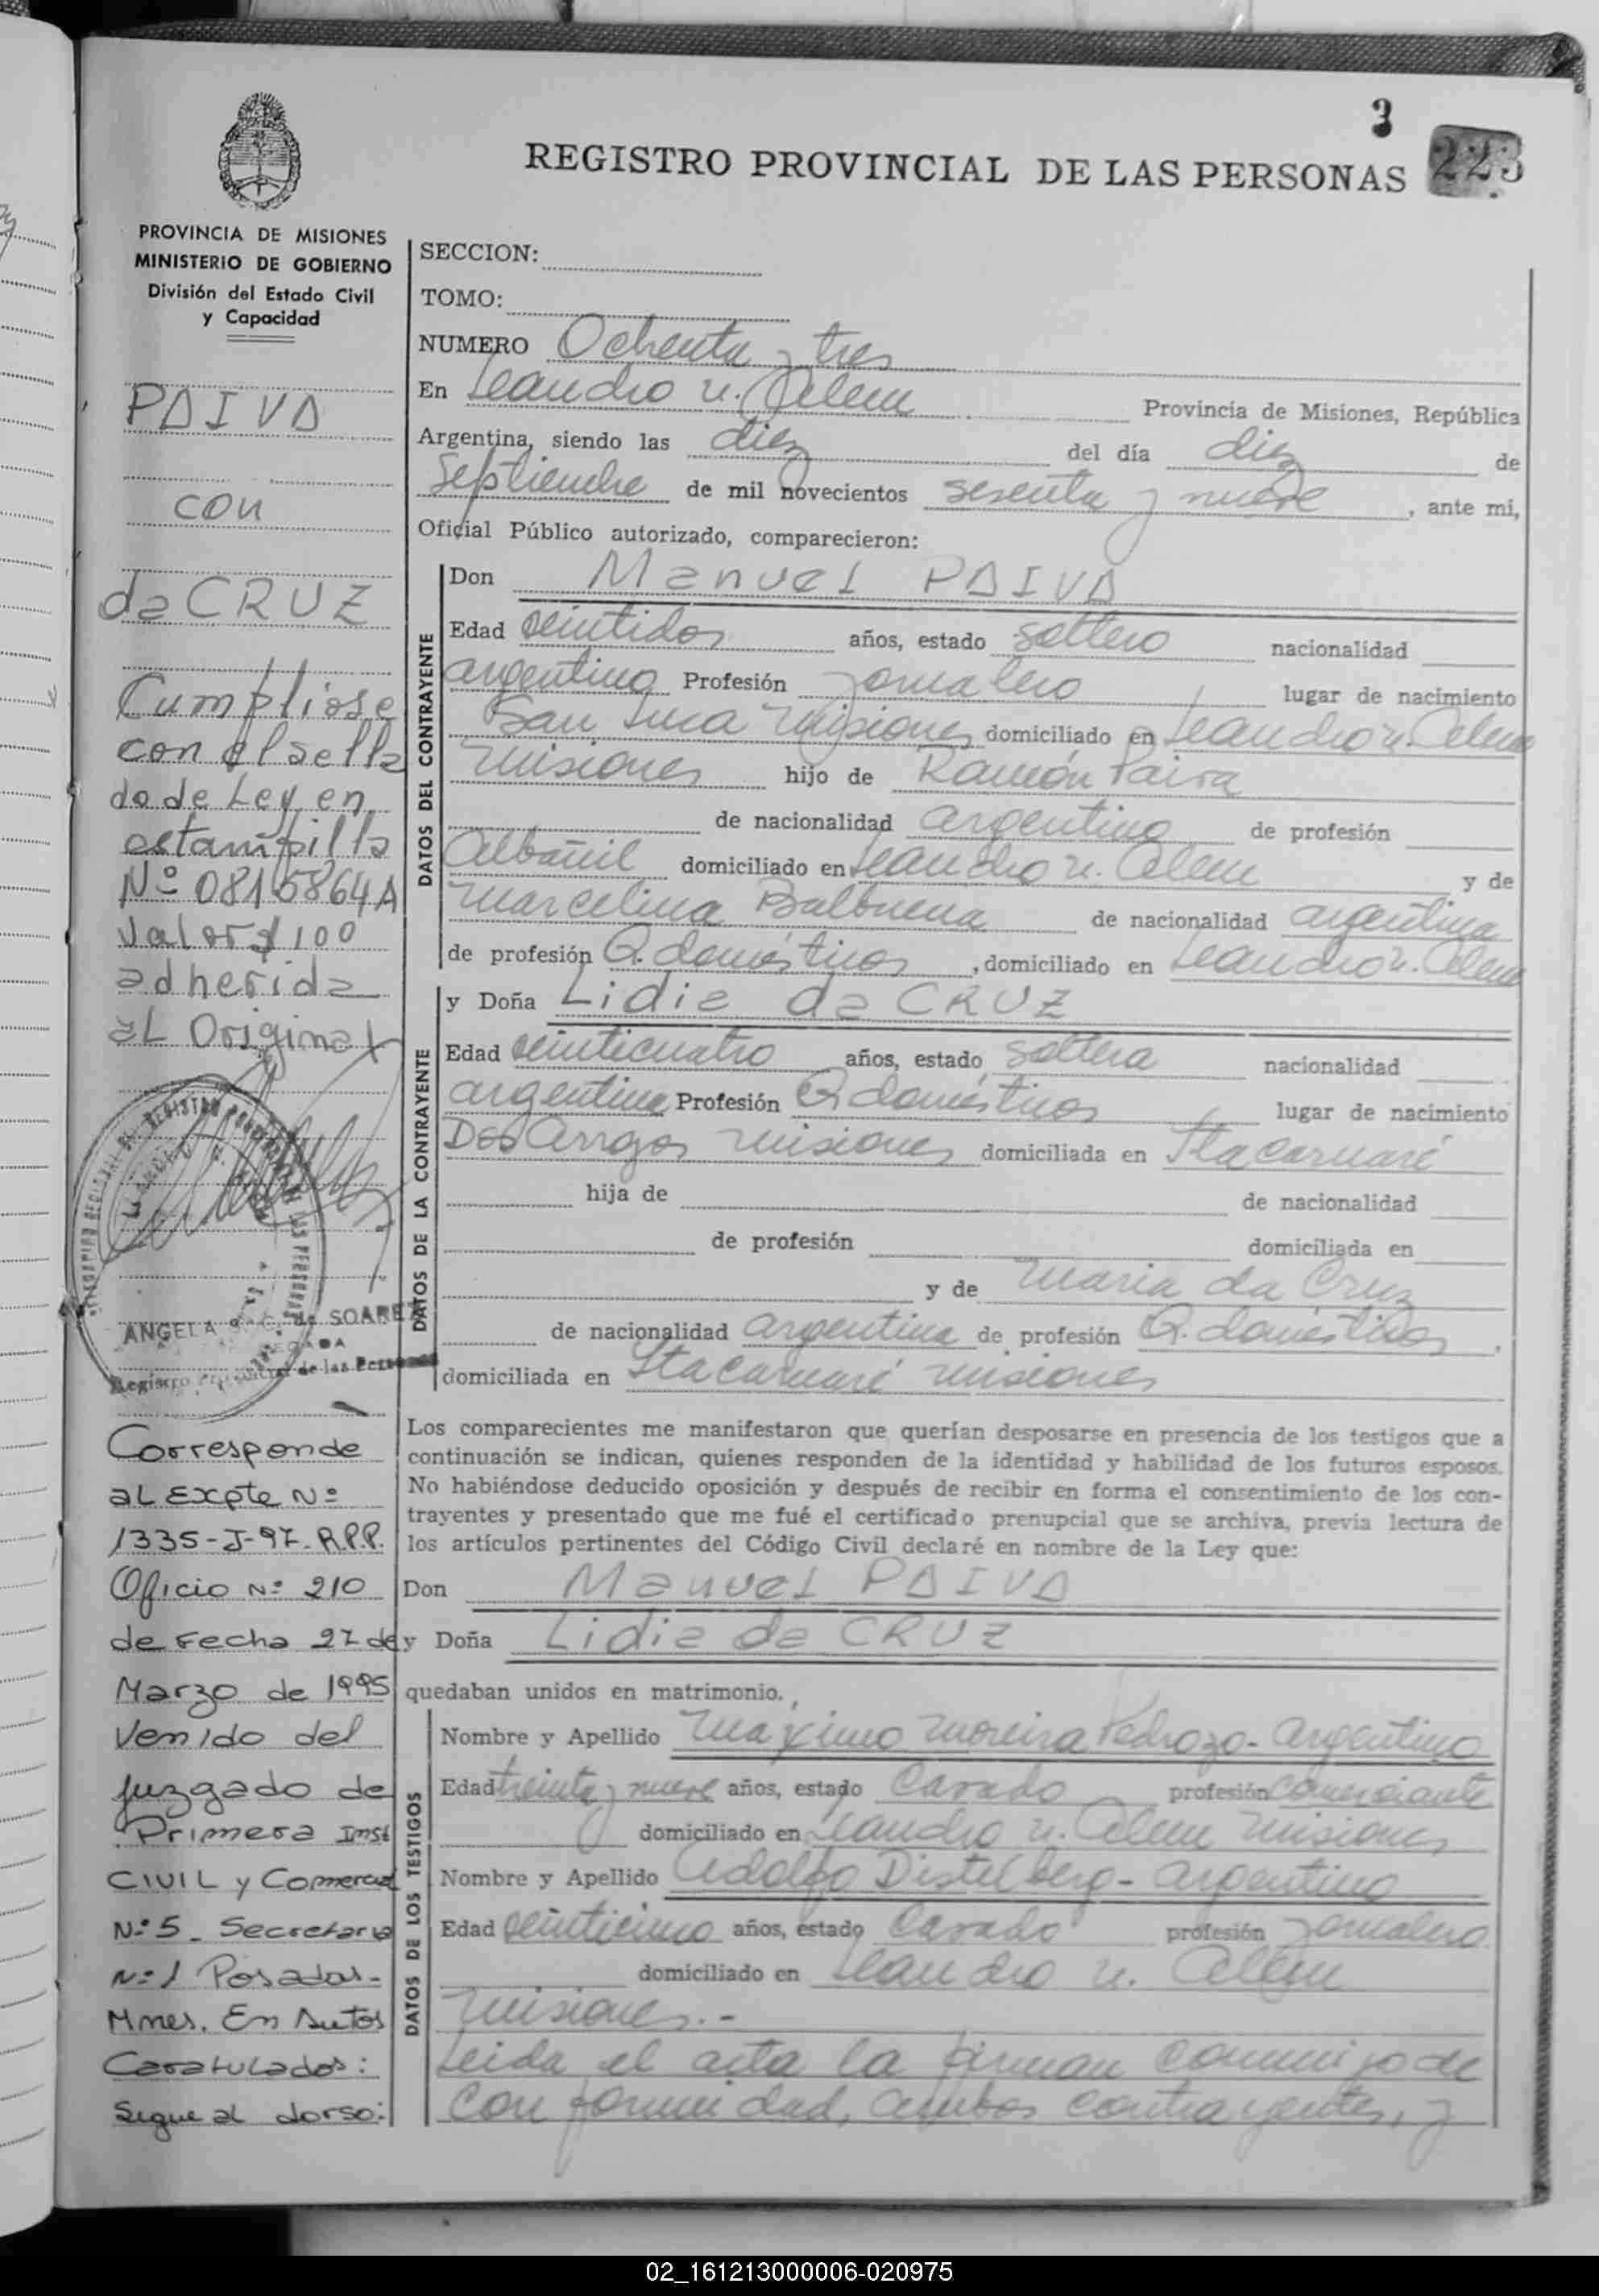 3
223
REGISTRO PROVINCIAL DE LAS PERSONAS
PROVINCIA DE MISIONES
MINISTERIO DE GOBIERNO
División del Estado Civil
y Capacidad
PAIVA
con
da CRUZ
Cumpliose
con el sella
do de Ley en
estampilla
Nº 0815864A
Valor $ 100
adherida
al Original
ANGELA S. C. de SOAREZ
Registro Provincial de las Personas
Corresponde
al Expte Nº
1335-J-97. R.P.P.
Oficio Nº 210
de Fecha 27 de
Marzo de 1995
Venido del
Juzgado de
Primera Inst
CIVIL y Comercial
Nº 5 - Secretaria
Nº 1 Posadas-
Mnes. En Autos
Caratulados:
Sigue al dorso:
SECCION:
TOMO:
NUMERO Ochenta y tres
En Leandro N. Alem Provincia de Misiones, República
Argentina, siendo las diez del día diez de
Septiembre de mil novecientos sesenta y nueve, ante mi,
Oficial Público autorizado, comparecieron:
DATOS DEL CONTRAYENTE
Don Manuel PAIVA
Edad veintidos años, estado soltero nacionalidad
argentino Profesión Jornalero lugar de nacimiento
San Juca Misiones domiciliado en Leandro N. Alem
Misiones hijo de Ramón Paiva
de nacionalidad argentino de profesión
Albañil domiciliado en Leandro N. Alem y de
Marcelina Balbuena de nacionalidad argentina
de profesión Q. domésticos, domiciliado en Leandro N. Alem
DATOS DE LA CONTRAYENTE
y Doña Lidia da CRUZ
Edad veinticuatro años, estado soltera nacionalidad
argentina Profesión Q. domésticos lugar de nacimiento
Dos Arroyos Misiones domiciliada en Itacaruaré
hija de de nacionalidad
de profesión domiciliada en
y de Maria da Cruz
de nacionalidad argentina de profesión Q. domésticos,
domiciliada en Itacaruaré Misiones
Los comparecientes me manifestaron que querían desposarse en presencia de los testigos que a
continuación se indican, quienes responden de la identidad y habilidad de los futuros esposos.
No habiéndose deducido oposición y después de recibir en forma el consentimiento de los con-
trayentes y presentado que me fué el certificado prenupcial que se archiva, previa lectura de
los artículos pertinentes del Código Civil declaré en nombre de la Ley que:
Don Manuel PAIVA
y Doña Lidia da CRUZ
quedaban unidos en matrimonio.
DATOS DE LOS TESTIGOS
Nombre y Apellido Máximo Moreira Pedrozo - Argentino
Edad treinta y nueve años, estado Casado profesión Comerciante
domiciliado en Leandro N. Alem Misiones
Nombre y Apellido Adolfo Distelberg - Argentino
Edad veinticinco años, estado Casado profesión Jornalero
domiciliado en Leandro N. Alem
Misiones.-
Leida el acta la firman conmigo de
conformidad, ambos contrayentes, y
02_161213000006-020975